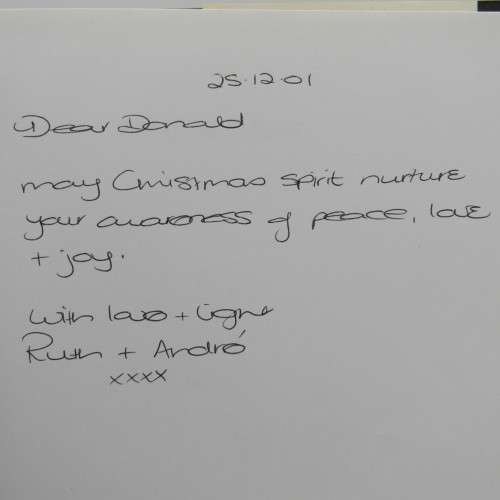 25.12.01
Dear Donald
may Christmas spirit nurture
your awareness of peace, love
+ joy.
with love + light
Ruth + André
xxxx